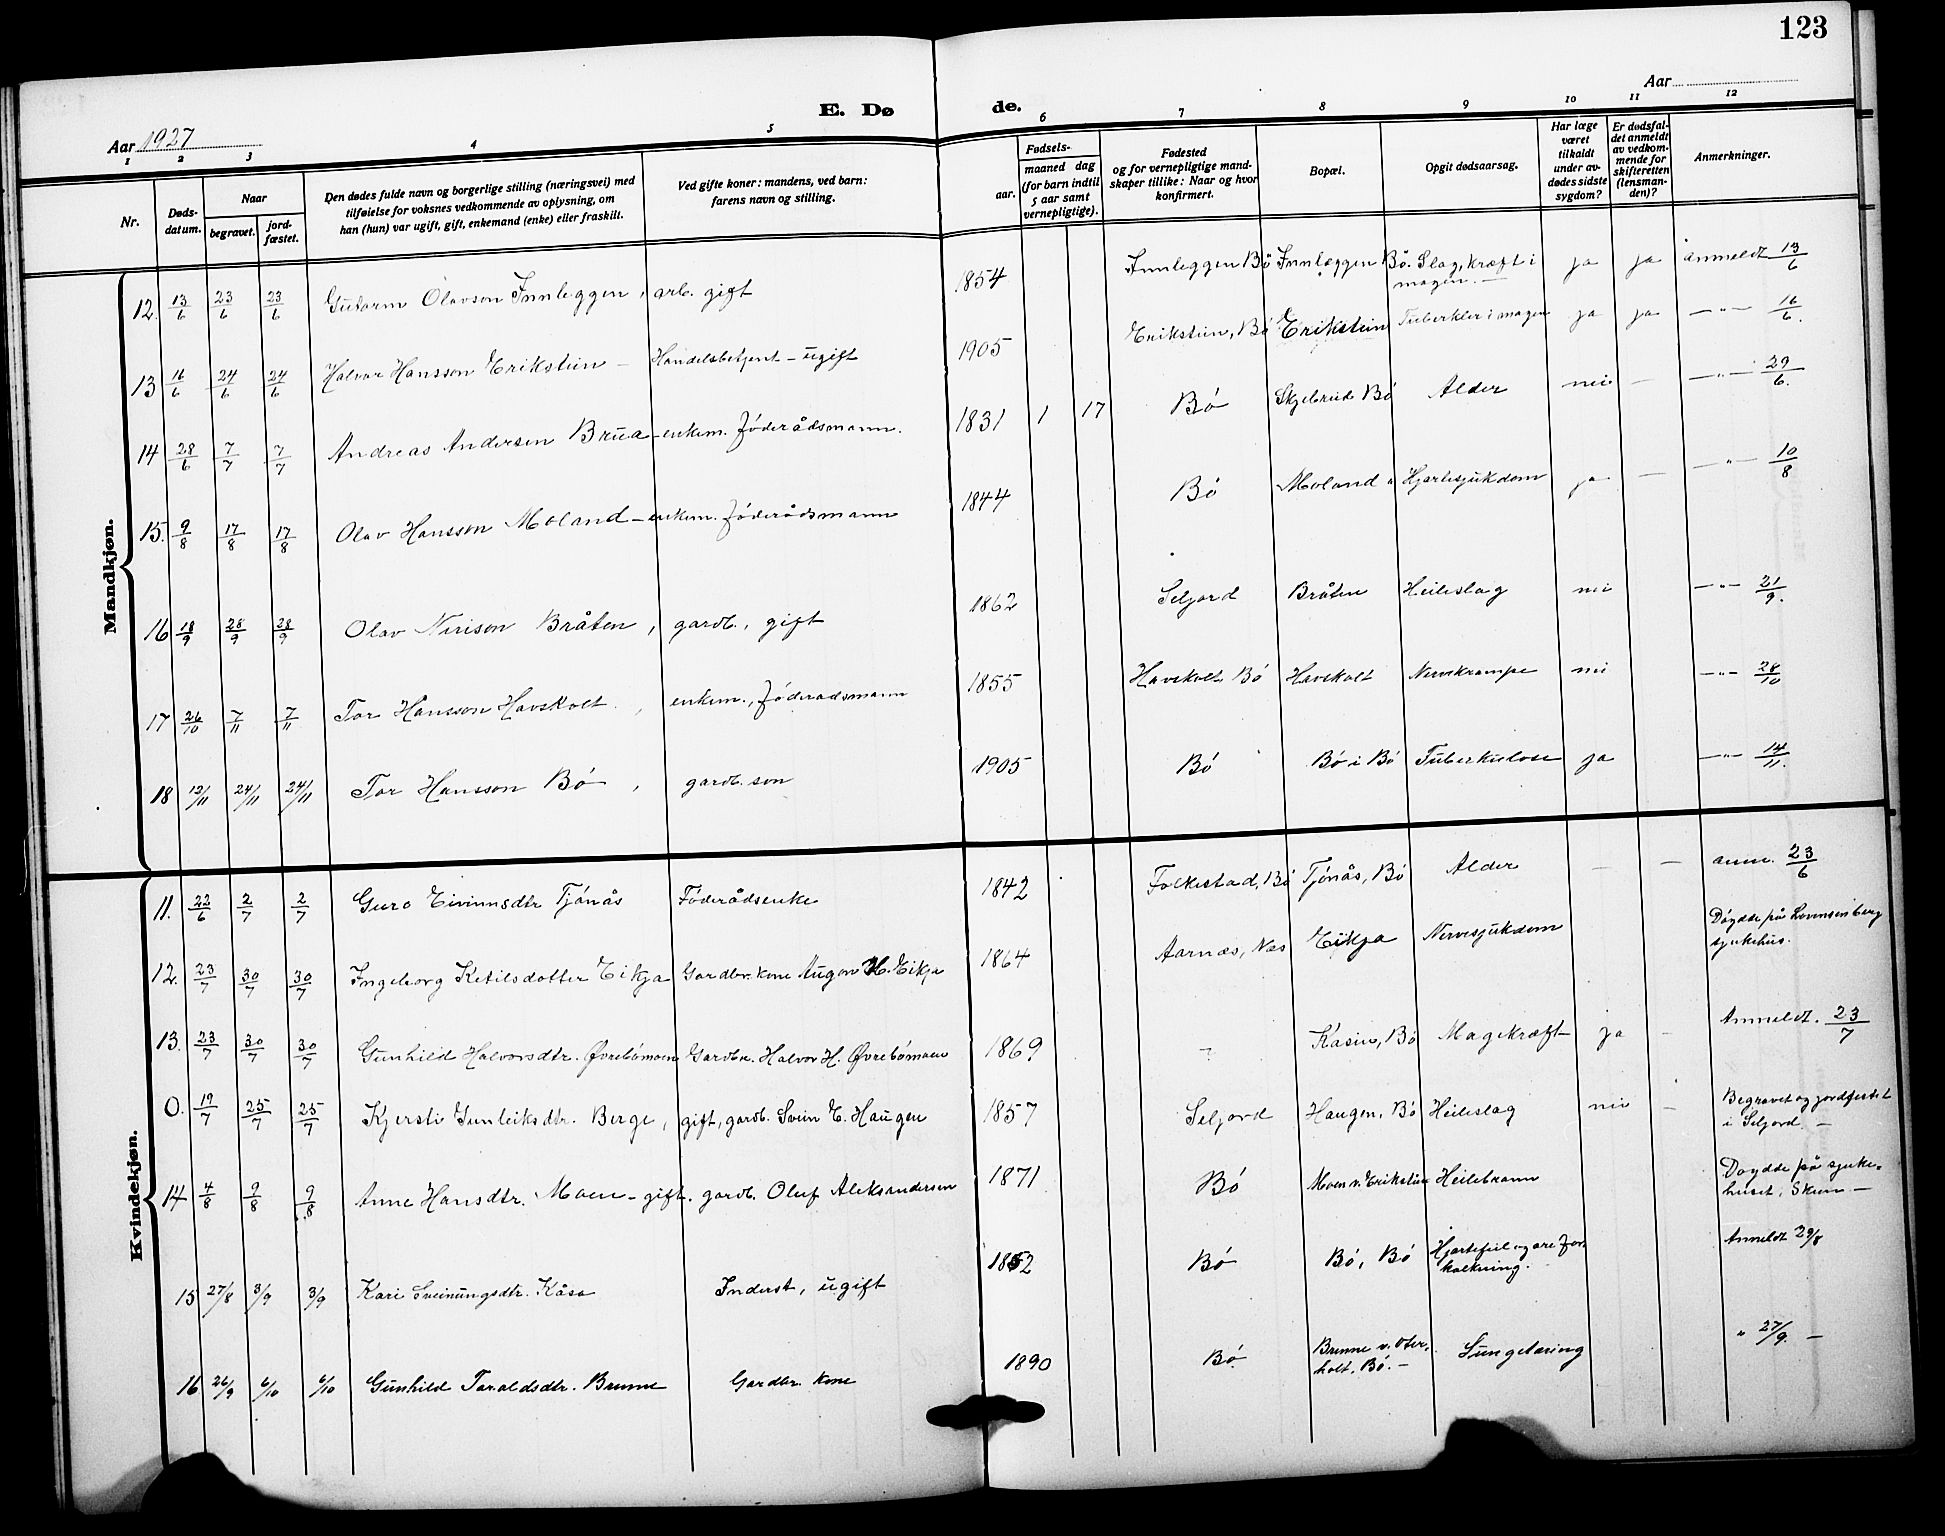 123
E. Døde.
Aar 1927
Aar
1 2 3 4 5 6 7 8 9 10 11 12
Nr.
Døds-datum.
Naar
begravet.
jord-fæstet.
Den dødes fulde navn og borgerlige stilling (næringsvei) med
tilføielse for voksnes vedkommende av oplysning, om
han (hun) var ugift, gift, enkemand (enke) eller fraskilt.
Ved gifte koner: mandens, ved barn:
farens navn og stilling.
Fødsels-
aar.
maaned dag
(for barn indtil
5 aar samt
vernepligtige).
Fødested
og for vernepligtige mand-
skaper tillike: Naar og hvor
konfirmert.
Bopæl.
Opgit dødsaarsag.
Har læge
været
tilkaldt
under av-
dødes sidste
sygdom?
Er dødsfal-
det anmeldt
av vedkom-
mende for
skifteretten
(lensman-
den)?
Anmerkninger.
Mandkjøn.
12. 13/6 23/6 23/6 Gutorm Olavson Innleggen, arb. gift 1854 Innleggen Bø Innleggen Bø. Slag, kræft i magen. — ja ja anmeldt 13/6
13 16/6 24/6 24/6 Halvor Hansson Erikstein — Handelsbetjent — ugift 1905 Erikstein, Bø Erikstein Tuberkler i magen ja ja — " — 16/6.
14 28/6 7/7 7/7 Andreas Andersen Brua — enkem. føderådsmann. 1831 1 17 Bø Skjebrud Bø Alder nei — — " — 29/6.
15. 9/8 17/8 17/8 Olav Hansson Moland — enkem. føderådsmann 1844 Bø Moland " Hjartesjukdom ja — — " — 10/8
16 18/9 28/9 28/9 Olav Nirison Bråten, gardb., gift 1862 Seljord Bråten Heileslag nei — " — 21/9.
17 26/10 7/11 7/11 Tor Hansson Havskolt, enkem., føderadsmann 1855 Havskolt Bø Havskolt Nervekrampe nei — " — 28/10
18 12/11 24/11 24/11 Tor Hansson Bø, gardb. son 1905 Bø Bø i Bø Tuberkulose ja — " — 14/11.
Kvindekjøn.
11. 22/6 2/7 2/7 Guro Eivinnsdtr Tjónås Føderådsenke 1842 Folkestad, Bø Tjønås, Bø Alder — — anm. 23/6
12. 23/7 30/7 30/7 Ingeborg Ketilsdotter Eikja Gardbr. kone Augon H. Eikja 1864 Aarnæs, Næs Eikja Nervesjukdom Døydde på Lovensenberg sjukehus.
13. 23/7 30/7 30/7 Gunhild Halvorsdtr. Øvrebómoen Gardbr. Halvor H. Øvrebómoen 1869 — Kasin, Bø Magekræft ja — Anmeldt. 23/7
0. 19/7 25/7 25/7 Kjersti Gunleiksdtr. Berge, gift, gardb. Svein E. Haugen 1857 Seljord Haugen, Bø Heileslag nei — Begravet og jordfestet i Seljord. —
14 4/8 9/8 9/8 Anne Hansdtr. Moen — gift. gardb. Oluf Aleksandersen 1871 Bø Moen v. Erikstein Heilebrann Døydde på sjuke-huset, Skien —
15 27/8 3/9 3/9 Kari Sveinungsdtr. Kåsa Inderst, ugift 1852 Bø Bø, Bø Hjartefeil og åreforkalkning. Anmeldt 29/8
16 26/9 6/10 6/10 Gunhild Taraldsdtr. Brenne Gardbr. kone 1890 Bø Brenne v. Oter-holt, Bø. — Lungetæring " 27/9. —